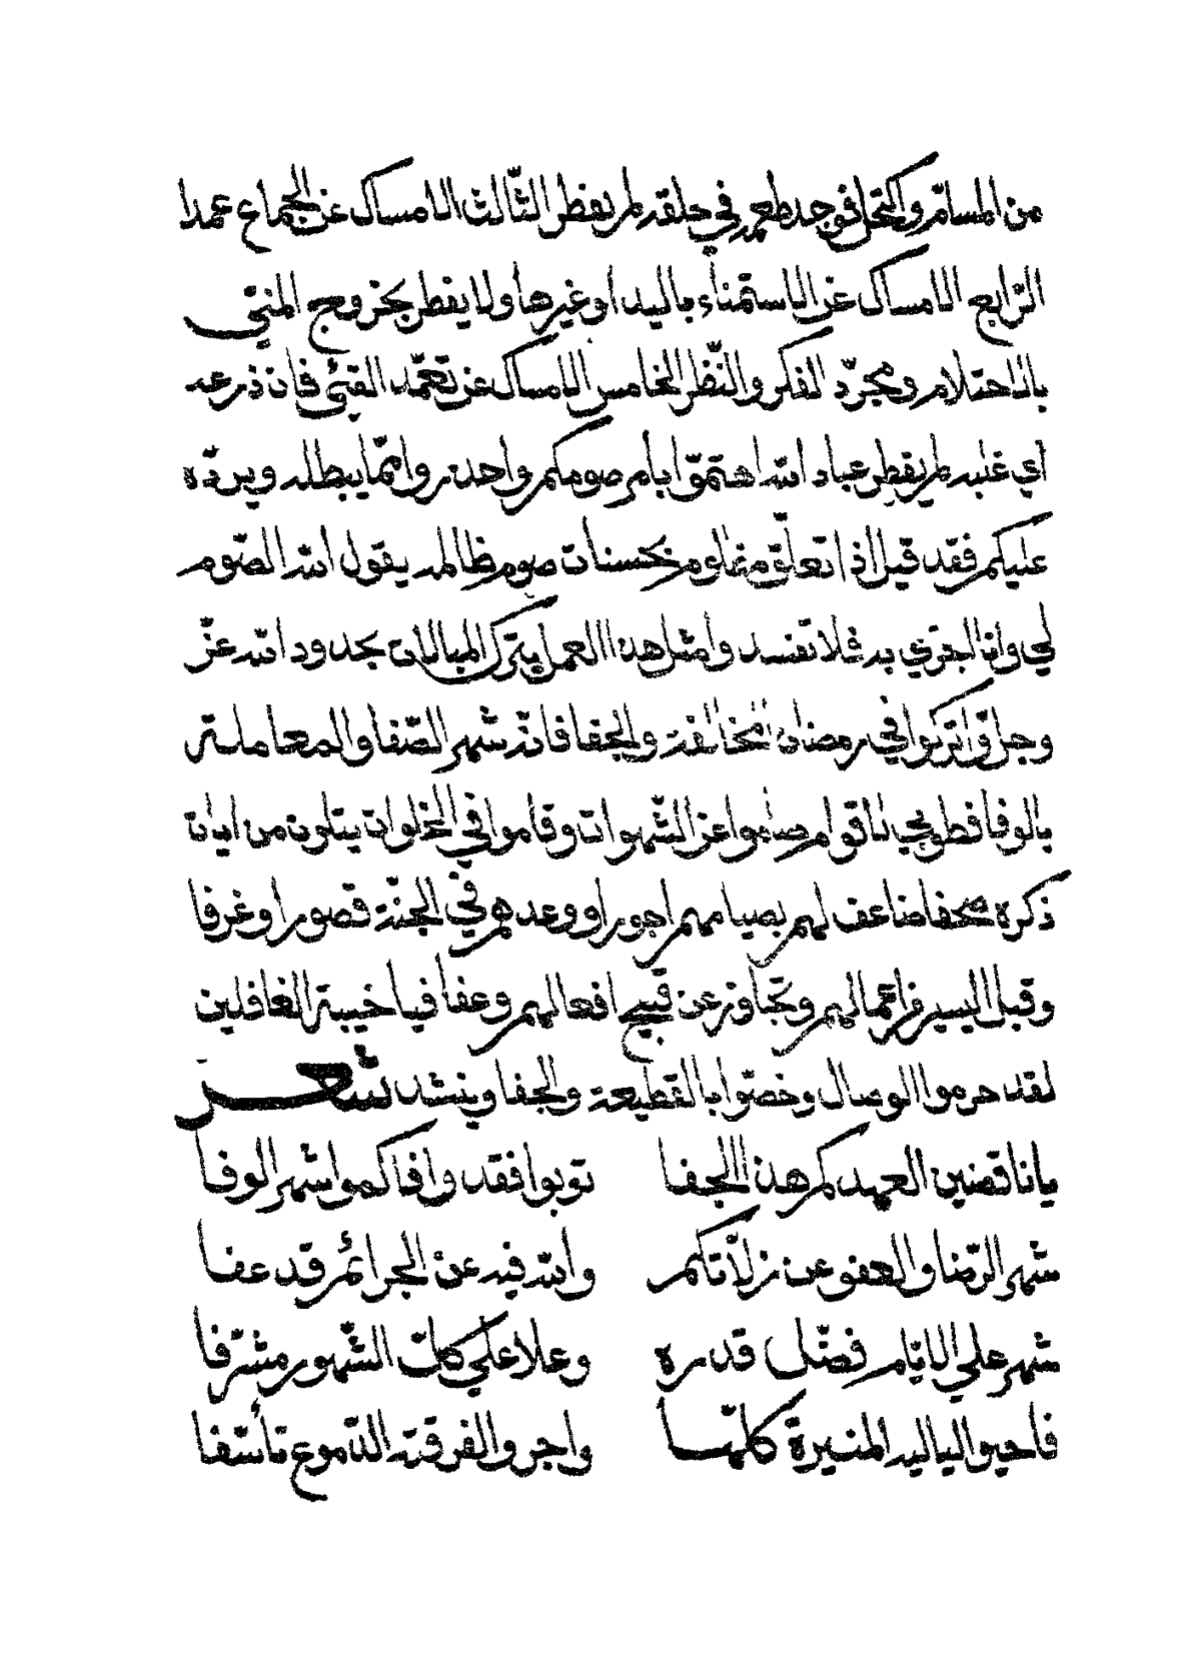 من المسام واكتحل فوجد طعمه في حلقه لم يفطر الثالث الامساك عن الجماع عمدا
الرابع الامساك عن الاستمناء باليد او غيرها ولا يفطر بخروج المني
بالاحتلام ومجرد الفكر والنظر الخامس الامساك عن تعمد القيئ فان ذرعه
اي غلبه لم يفطر عباد الله اهتموا بامر صومكم واحذروا مما يبطله ويرده
عليكم فقد قيل اذا تعلق مظلوم بحسنات صوم ظالمه يقول الله الصوم
لي وانا اجزي به فلا تفسدوا مثل هذا العمل بترك المبالات بحدود الله عز
وجل واتركوا في رمضان المخالفة والجفا فانه شهر الصفا والمعاملة
بالوفا فطوبى لاقوام صاموا عن الشهوات وقاموا في الخلوات يتلون من ايات
ذكره صحفا ضاعف لهم بصيامهم اجورا ووعدهم في الجنة قصورا وغرفا
وقبل اليسير من اعمالهم وتجاوز عن قبيح افعالهم وعفا فيا خيبة الغافلين
لقد حرموا الوصال وخصوا بالقطيعة والجفا وينشد شعر
يا ناقضين العهد كم هذا الجفا توبوا فقد وافاكموا شهر الوفا
شهر الرضا والعفو عن زلاتكم والله فيه عن الجرائم قد عفا
شهر على الايام فضل قدره وعلا على كل الشهور مشرفا
فاحيوا لياليه المنيرة كلها واجروا لفرقته الدموع تأسفا